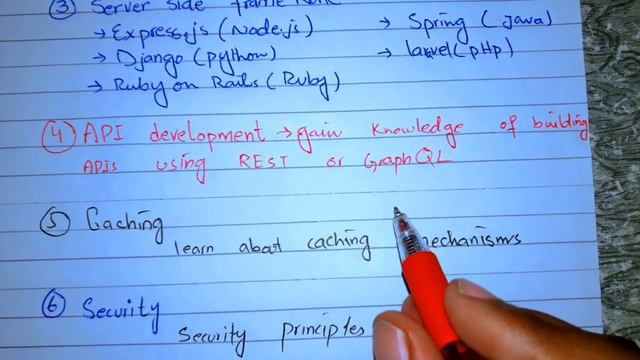 ③ Server side frame work
→ Express.js (Node.js) → Spring (Java)
→ Django (python) → laravel (pHp)
→ Ruby on Rails (Ruby)
④ API development → gain knowledge of building
APIs using REST or GraphQL
⑤ Caching
learn about caching mechanisms
⑥ Security
Security principles